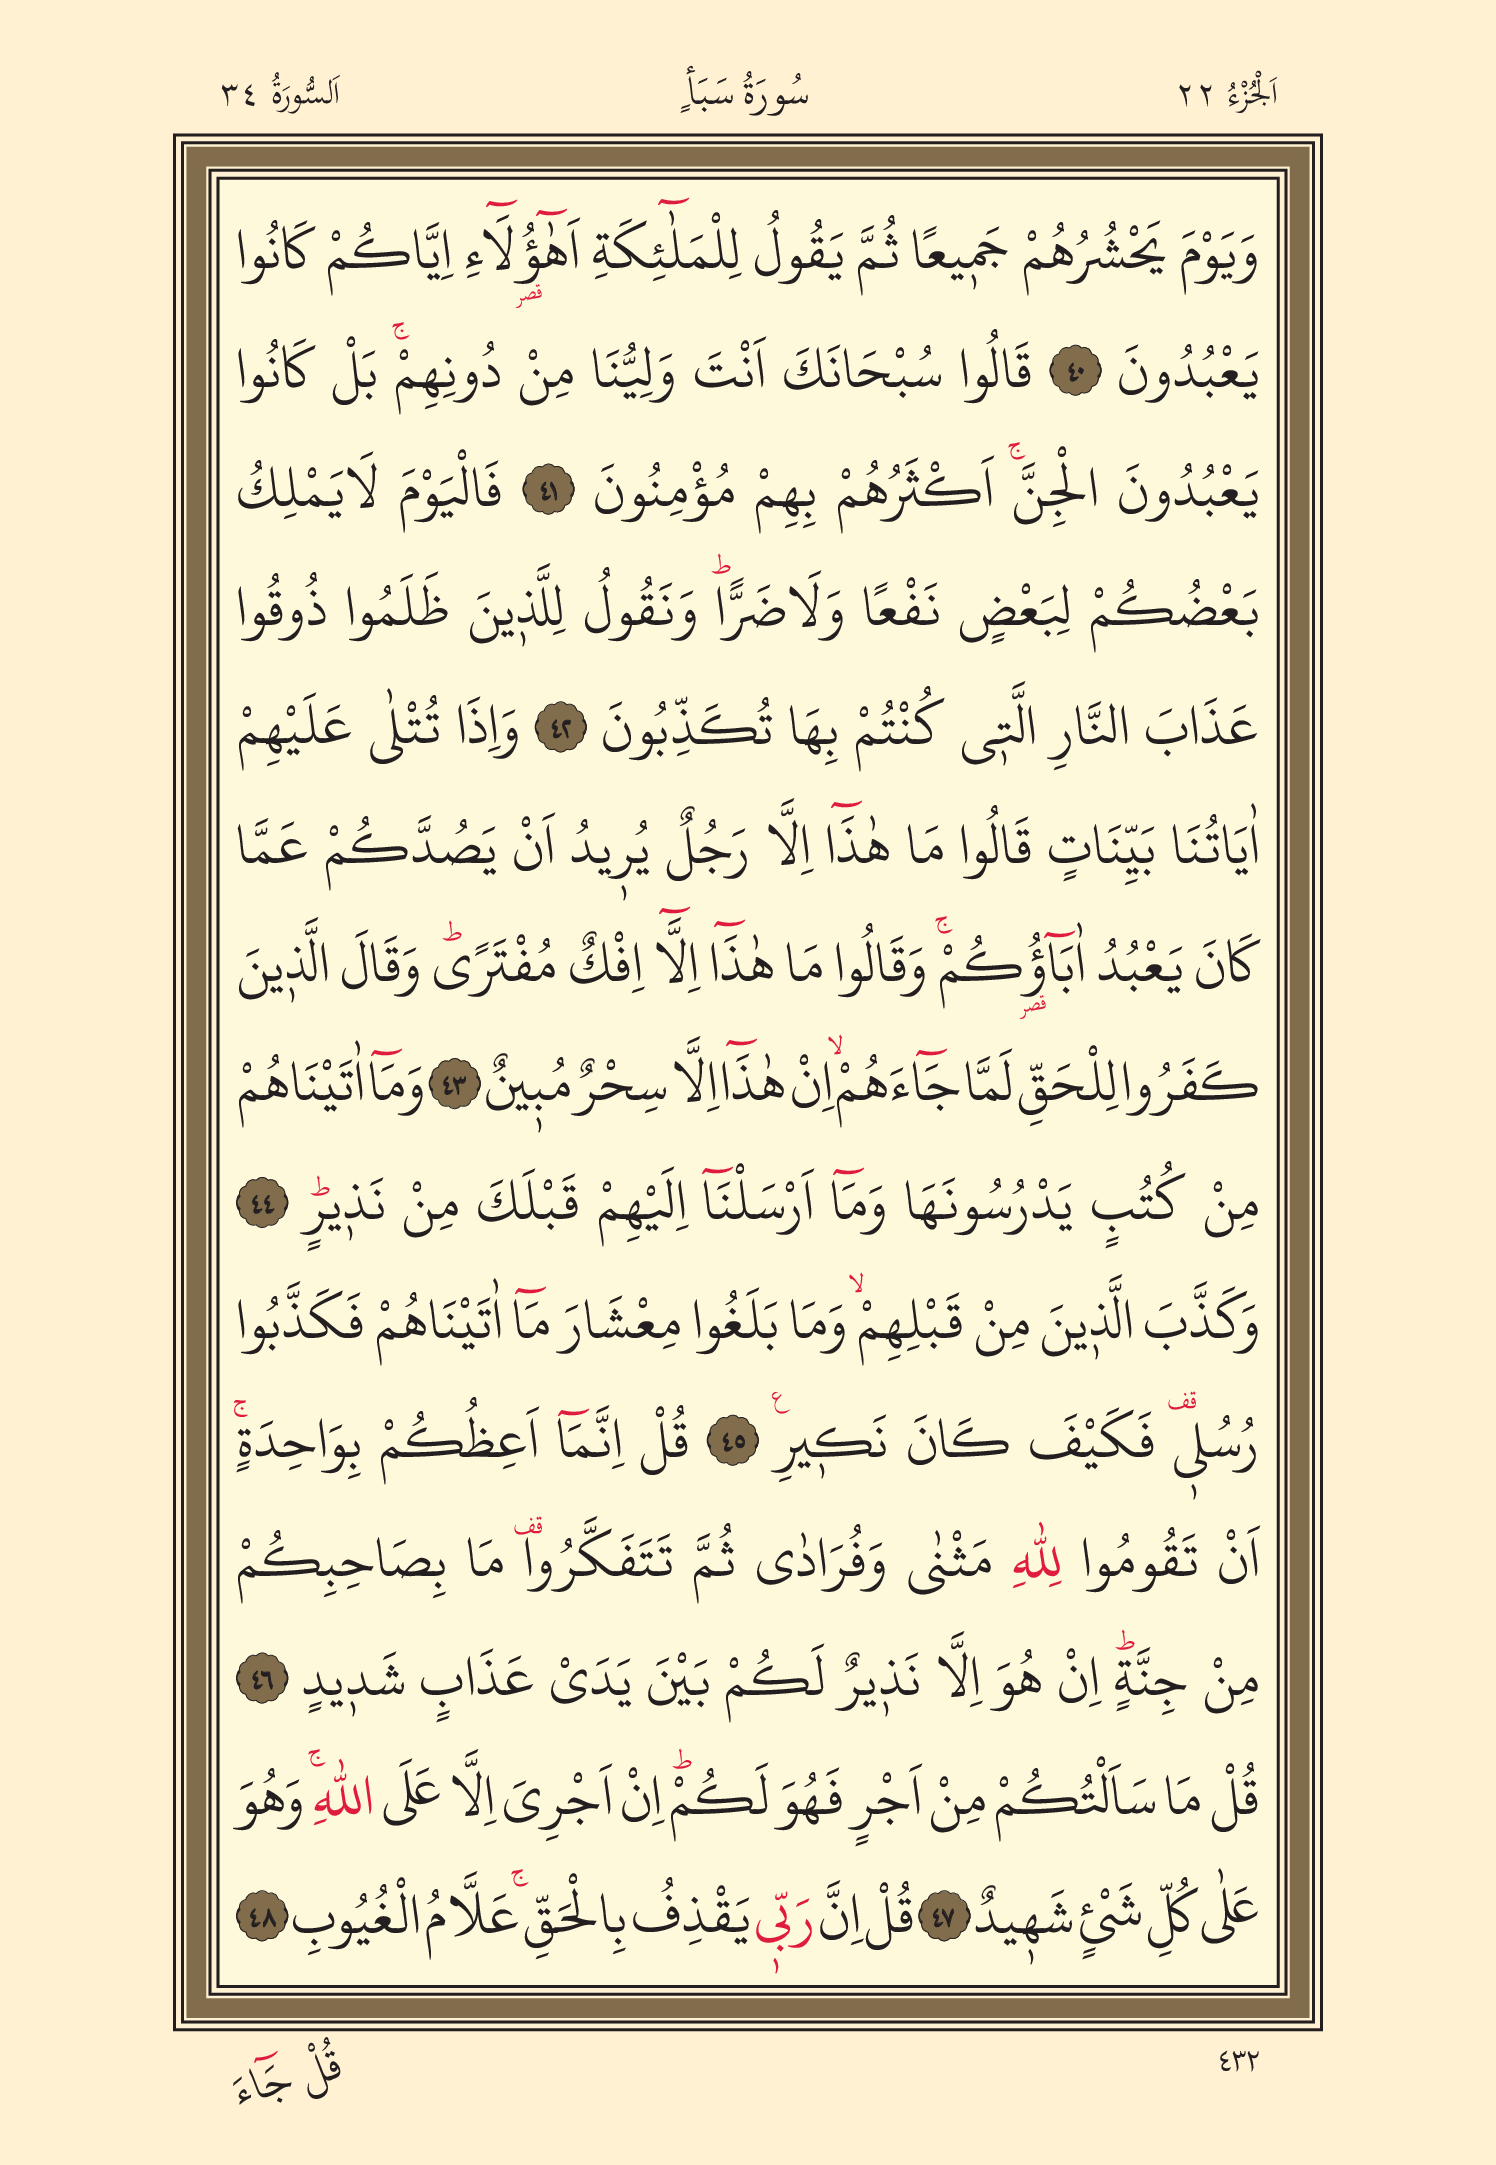 اَلْجُزْءُ ٢٢
سُورَةُ سَبَأٍ
اَلسُّورَةُ ٣٤
وَيَوْمَ يَحْشُرُهُمْ جَم۪يعًا ثُمَّ يَقُولُ لِلْمَلٰٓئِكَةِ اَهٰٓؤُ۬لَٓاءِ اِيَّاكُمْ كَانُوا
قصر
يَعْبُدُونَ ﴿٤٠﴾ قَالُوا سُبْحَانَكَ اَنْتَ وَلِيُّنَا مِنْ دُونِهِمْۚ بَلْ كَانُوا
يَعْبُدُونَ الْجِنَّۚ اَكْثَرُهُمْ بِهِمْ مُؤْمِنُونَ ﴿٤١﴾ فَالْيَوْمَ لَايَمْلِكُ
بَعْضُكُمْ لِبَعْضٍ نَفْعًا وَلَاضَرًّاۜ وَنَقُولُ لِلَّذ۪ينَ ظَلَمُوا ذُوقُوا
عَذَابَ النَّارِ الَّت۪ى كُنْتُمْ بِهَا تُكَذِّبُونَ ﴿٤٢﴾ وَاِذَا تُتْلٰى عَلَيْهِمْ
اٰيَاتُنَا بَيِّنَاتٍ قَالُوا مَا هٰذَٓا اِلَّا رَجُلٌ يُر۪يدُ اَنْ يَصُدَّكُمْ عَمَّا
كَانَ يَعْبُدُ اٰبَٓاؤُ۬كُمْۚ وَقَالُوا مَا هٰذَٓا اِلَّٓا اِفْكٌ مُفْتَرًىۜ وَقَالَ الَّذ۪ينَ
قصر
كَفَرُوا لِلْحَقِّ لَمَّا جَٓاءَهُمْۙ اِنْ هٰذَٓا اِلَّا سِحْرٌ مُب۪ينٌ ﴿٤٣﴾ وَمَٓا اٰتَيْنَاهُمْ
مِنْ كُتُبٍ يَدْرُسُونَهَا وَمَٓا اَرْسَلْنَٓا اِلَيْهِمْ قَبْلَكَ مِنْ نَذ۪يرٍۜ ﴿٤٤﴾
وَكَذَّبَ الَّذ۪ينَ مِنْ قَبْلِهِمْۙ وَمَا بَلَغُوا مِعْشَارَ مَٓا اٰتَيْنَاهُمْ فَكَذَّبُوا
رُسُل۪ى قف فَكَيْفَ كَانَ نَك۪يرِ ع ﴿٤٥﴾ قُلْ اِنَّمَٓا اَعِظُكُمْ بِوَاحِدَةٍۚ
اَنْ تَقُومُوا لِلّٰهِ مَثْنٰى وَفُرَادٰى ثُمَّ تَتَفَكَّرُوا قف مَا بِصَاحِبِكُمْ
مِنْ جِنَّةٍۜ اِنْ هُوَ اِلَّا نَذ۪يرٌ لَكُمْ بَيْنَ يَدَىْ عَذَابٍ شَد۪يدٍ ﴿٤٦﴾
قُلْ مَا سَاَلْتُكُمْ مِنْ اَجْرٍ فَهُوَ لَكُمْۜ اِنْ اَجْرِىَ اِلَّا عَلَى اللّٰهِۚ وَهُوَ
عَلٰى كُلِّ شَىْءٍ شَه۪يدٌ ﴿٤٧﴾ قُلْ اِنَّ رَبّ۪ى يَقْذِفُ بِالْحَقِّۚ عَلَّامُ الْغُيُوبِ ﴿٤٨﴾
٤٣٢
قُلْ جَٓاءَ